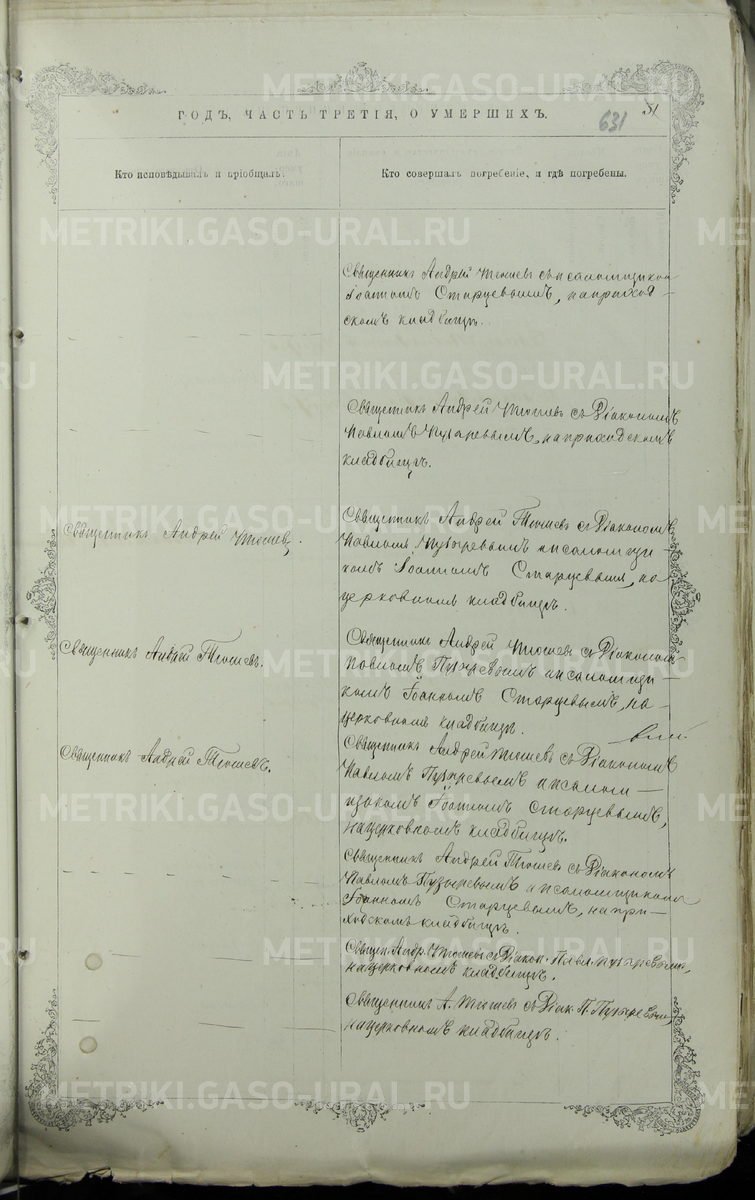 METRIKI.GASO-URAL.RU
ГОДЪ, ЧАСТЬ ТРЕТІЯ, О УМЕРШИХЪ.
631
51
Кто исповѣдывалъ и пріобщалъ.
Кто совершалъ погребеніе, и гдѣ погребены.
Священникъ Андрей Тюшевъ съ псаломщикомъ
Іоанномъ Старцевымъ, на приход-
скомъ кладбищѣ.
Священникъ Андрей Тюшевъ съ Діакономъ
Павломъ Пузыревымъ, на приходскомъ
кладбищѣ.
Священникъ Андрей Тюшевъ.
Священникъ Андрей Тюшевъ съ Діакономъ
Павломъ Пузыревымъ и псаломщи-
комъ Іоанномъ Старцевымъ, на
церковномъ кладбищѣ.
Священникъ Андрей Тюшевъ.
Священникъ Андрей Тюшевъ съ Діакономъ
Павломъ Пузыревымъ и псаломщи-
комъ Іоанномъ Старцевымъ, на
церковномъ кладбищѣ.
Священникъ Андрей Тюшевъ.
Священникъ Андрей Тюшевъ съ Діакономъ
Павломъ Пузыревымъ и псалом-
щикомъ Іоанномъ Старцевымъ,
на церковномъ кладбищѣ.
Священникъ Андрей Тюшевъ съ Діакономъ
Павломъ Пузыревымъ и псаломщикомъ
Іоанномъ Старцевымъ, на при-
ходскомъ кладбищѣ.
Священ. Андр. Тюшевъ съ Діакон. Павл. Пузыревымъ,
на церковномъ кладбищѣ.
Священникъ А. Тюшевъ съ Діак. П. Пузыревымъ,
на церковномъ кладбищѣ.